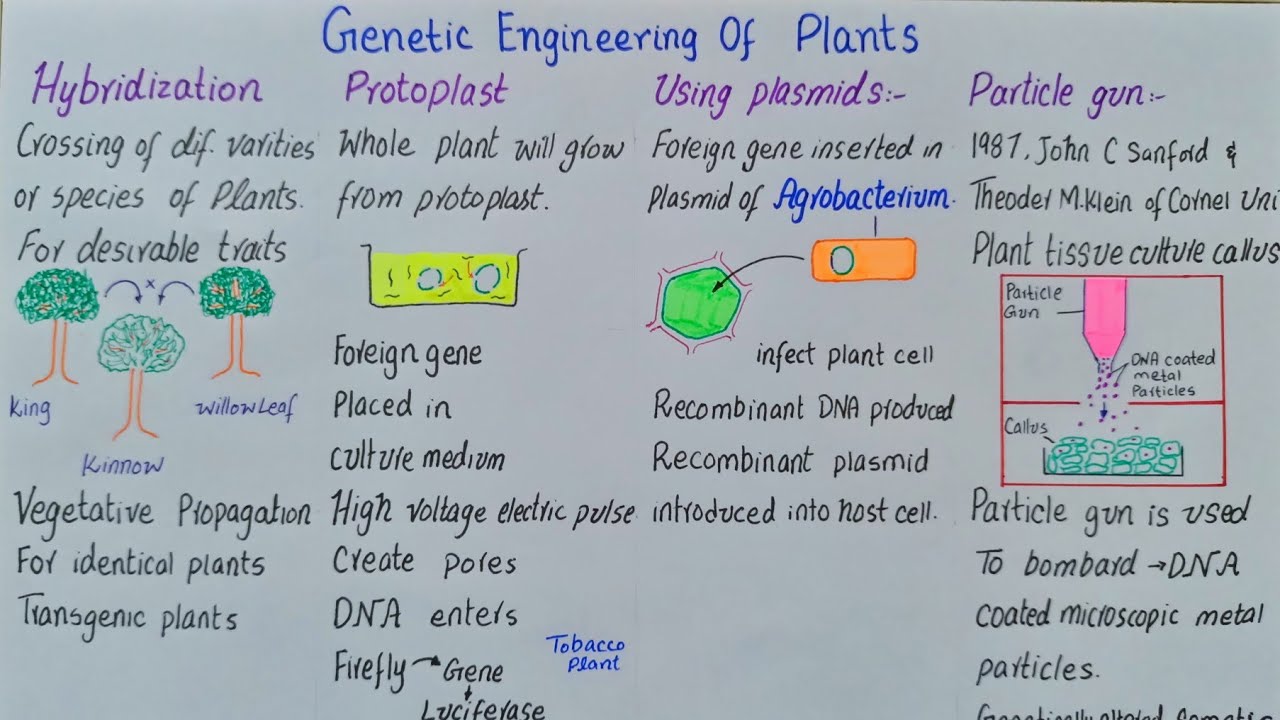 Genetic Engineering Of Plants
Hybridization
Crossing of dif. varities
or species of Plants.
For desirable traits
x
King
Willow Leaf
Kinnow
Vegetative Propagation
For identical plants
Transgenic plants
Protoplast
Whole plant will grow
from protoplast.
Foreign gene
Placed in
culture medium
High voltage electric pulse
Create pores
DNA enters
Firefly → Gene
Luciferase
Tobacco
Plant
Using plasmids:-
Foreign gene inserted in
Plasmid of Agrobacterium.
infect plant cell
Recombinant DNA produced
Recombinant plasmid
introduced into host cell.
Particle gun:-
1987, John C Sanford &
Theoder M. Klein of Cornel Uni
Plant tissue culture callus
Particle
Gun
DNA coated
metal
Particles
Callus
Particle gun is used
To bombard → DNA
coated microscopic metal
particles.
Genetically altered